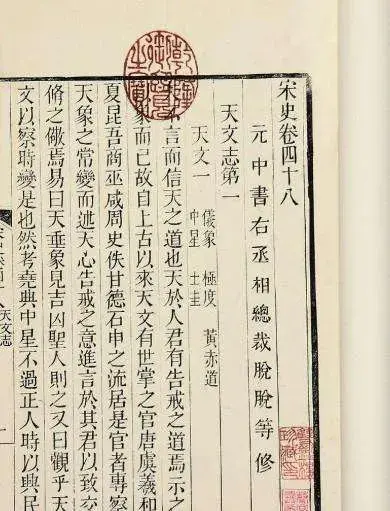 宋史卷四十八
元中書右丞相總裁脫脫等修
天文志第一
天文一
儀象 極度 黃赤道
中星 土圭
不言而信天之道也天於人君有告戒之道焉示之
象而已故自上古以來天文有世掌之官唐虞羲和
夏昆吾商巫咸周史佚甘德石申之流居是官者專察
天象之常變而述天心告戒之意進言於其君以致交
脩之儆焉易曰天垂象見吉凶聖人則之又曰觀乎天
文以察時變是也然考堯典中星不過正人時以興民
天文志